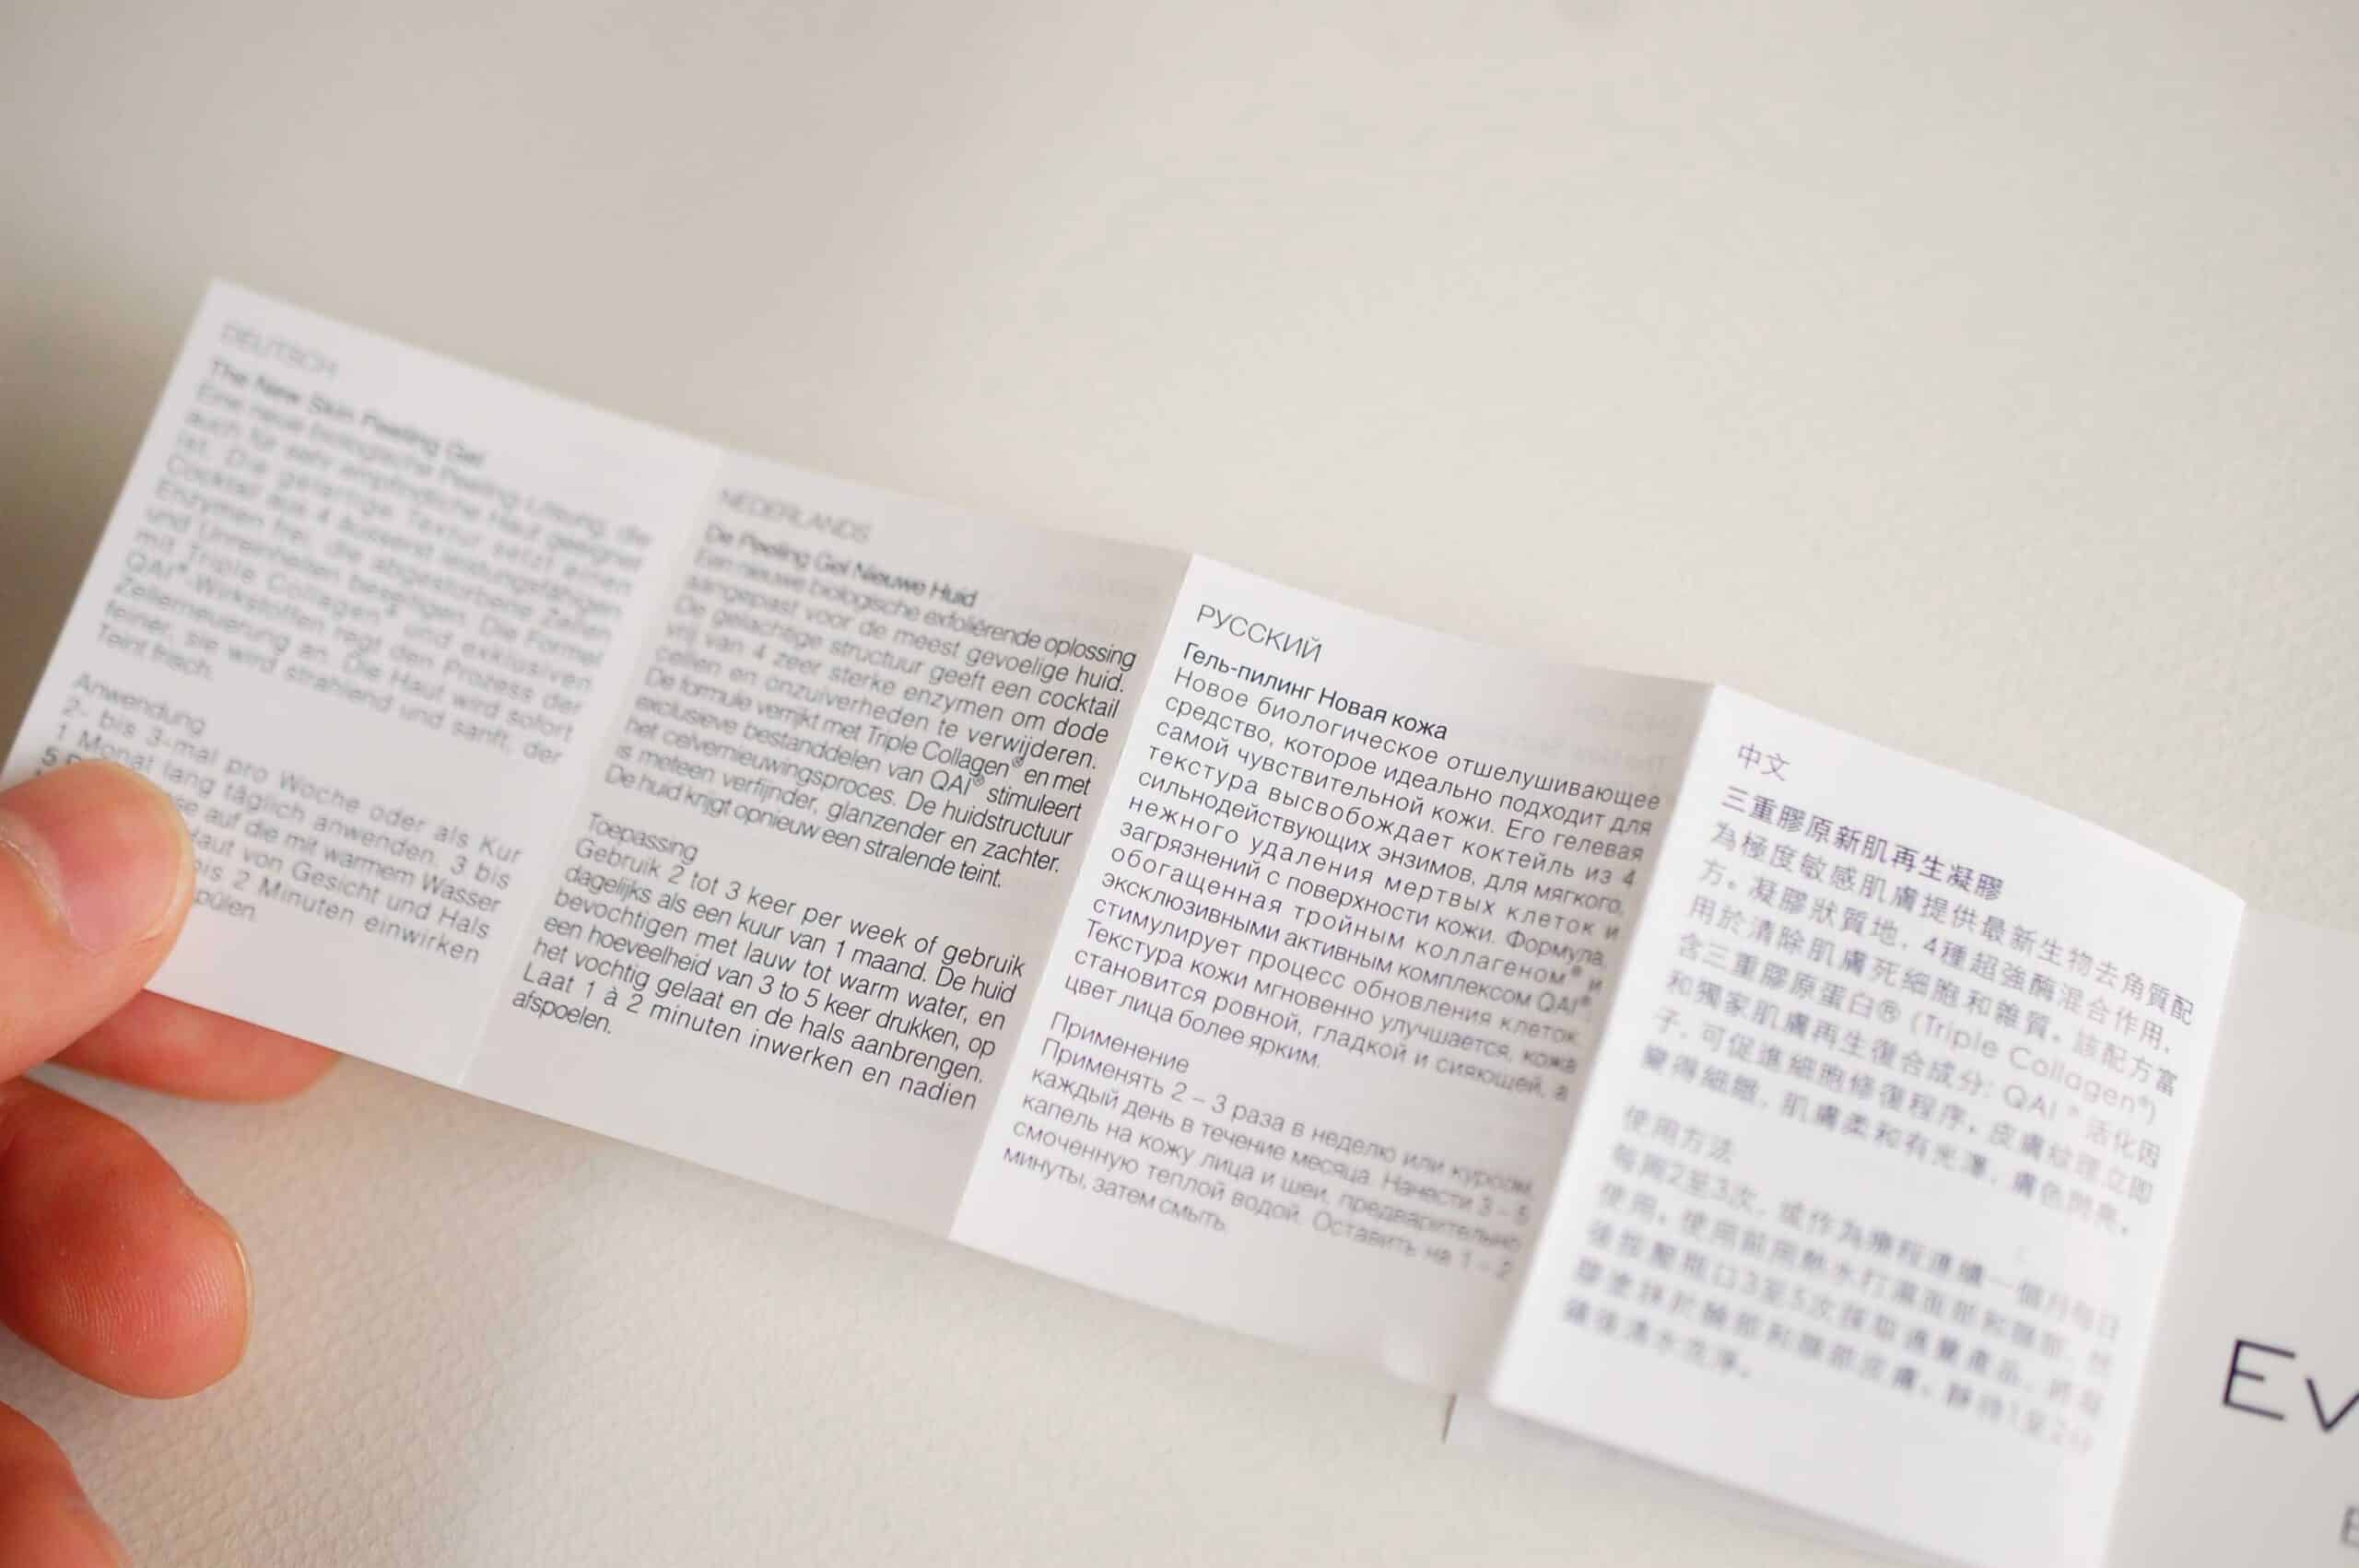 DEUTSCH
The New Skin Peeling Gel
Eine neue biologische Peeling-Lösung, die
auch für sehr empfindliche Haut geeignet
ist. Die gelartige Textur setzt einen
Cocktail aus 4 äusserst leistungsfähigen
Enzymen frei, die abgestorbene Zellen
und Unreinheiten beseitigen. Die Formel
mit Triple Collagen® und exklusiven
QAI®-Wirkstoffen regt den Prozess der
Zellerneuerung an. Die Haut wird sofort
feiner, sie wird strahlend und sanft, der
Teint frisch.
Anwendung
2- bis 3-mal pro Woche oder als Kur
1 Monat lang täglich anwenden. 3 bis
5
auf die mit warmem Wasser
Haut von Gesicht und Hals
bis 2 Minuten einwirken
NEDERLANDS
De Peeling Gel Nieuwe Huid
Een nieuwe biologische exfoliërende oplossing
aangepast voor de meest gevoelige huid.
De gelachtige structuur geeft een cocktail
vrij van 4 zeer sterke enzymen om dode
cellen en onzuiverheden te verwijderen.
De formule verrijkt met Triple Collagen® en met
exclusieve bestanddelen van QAI® stimuleert
het celvernieuwingsproces. De huidstructuur
is meteen verfijnder, glanzender en zachter.
De huid krijgt opnieuw een stralende teint.
Toepassing
Gebruik 2 tot 3 keer per week of gebruik
dagelijks als een kuur van 1 maand. De huid
bevochtigen met lauw tot warm water, en
een hoeveelheid van 3 to 5 keer drukken, op
het vochtig gelaat en de hals aanbrengen.
Laat 1 à 2 minuten inwerken en nadien
afspoelen.
РУССКИЙ
Гель-пилинг Новая кожа
Новое биологическое отшелушивающее
средство, которое идеально подходит для
самой чувствительной кожи. Его гелевая
текстура высвобождает коктейль из 4
сильнодействующих энзимов, для мягкого,
нежного удаления мертвых клеток и
загрязнений с поверхности кожи. Формула,
обогащенная тройным коллагеном® и
эксклюзивными активным комплексом QAI®,
стимулирует процесс обновления клеток.
Текстура кожи мгновенно улучшается, кожа
становится ровной, гладкой и сияющей, а
цвет лица более ярким.
Применение
Применять 2 – 3 раза в неделю или курсом
каждый день в течение месяца. Нанести 3 – 5
капель на кожу лица и шеи, предварительно
смоченную теплой водой. Оставить на 1 – 2
минуты, затем смыть.
中文
三重膠原新肌再生凝膠
為極度敏感肌膚提供最新生物去角質配
方。凝膠狀質地，4種超強酶混合作用，
用於清除肌膚死細胞和雜質。該配方富
含三重膠原蛋白® (Triple Collagen®)
和獨家肌膚再生復合成分: QAI® 活化因
子，可促進細胞修復程序。皮膚紋理立即
變得細緻，肌膚柔和有光澤，膚色閃亮。
使用方法
每周2至3次，或作為療程連續一個月每日
使用。使用前用熱水打濕面部和頸部，然
後按壓瓶口3至5次採取適量產品，將凝
膠塗抹於臉部和頸部皮膚。靜待1至2分
鐘後清水洗淨。
Ev